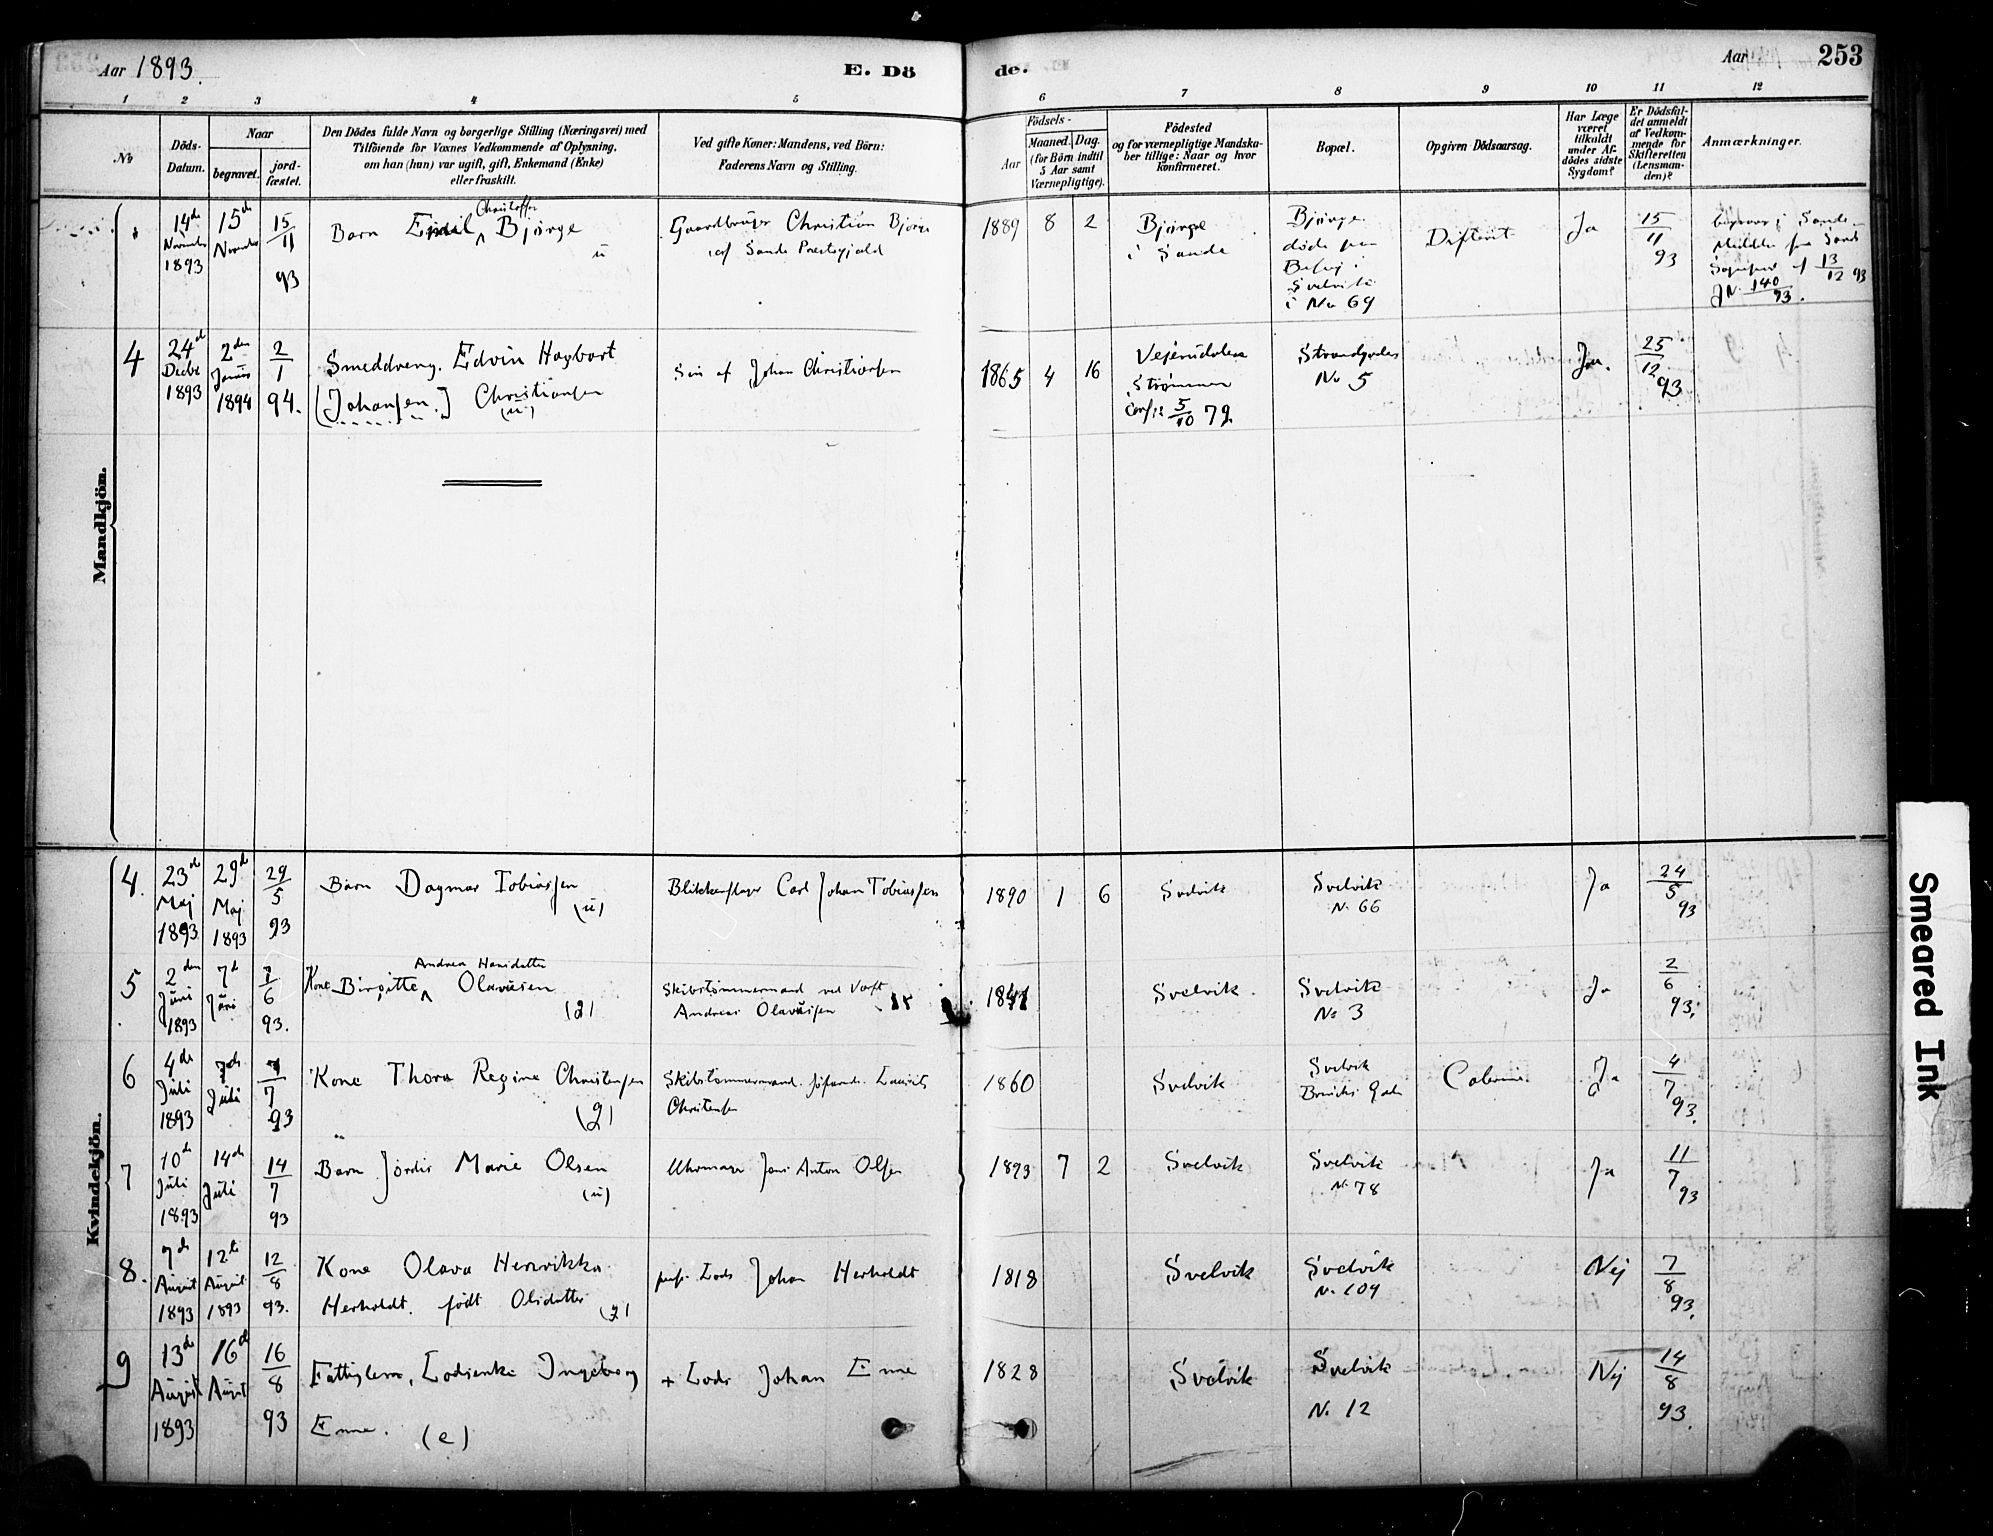 Aar 1893.
E. Dö
de.
Aar
253
1 2 3 4 5 6 7 8 9 10 11 12
No
Döds-
Datum.
Naar
begravet.
jord-
fæstet.
Den Dödes fulde Navn og borgerlige Stilling (Næringsvei) med
Tilföiende for Voxnes Vedkommende af Oplysning,
om han (hun) var ugift, gift, Enkemand (Enke)
eller fraskilt.
Ved gifte Koner: Mandens, ved Börn:
Faderens Navn og Stilling.
Födsels-
Aar
Maaned.
Dag.
(for Börn indtil
5 Aar samt
Værnepligtige).
Födested
og for værnepligtige Mandska-
ber tillige: Naar og hvor
konfirmeret.
Bopæl.
Opgiven Dödsaarsag.
Har Læge
været
tilkaldt
under Af-
dödes sidste
Sygdom?
Er Dödsfal-
det anmeldt
af Vedkom-
mende for
Skifteretten
(Lensman-
den)?
Anmærkninger.
Mandkjön.
14de
November
1893
15de
November
15/11
93
Christoffer
Barn Emil Bjørge
u
Gaardbruger Christian Bjørge
af Sande Præstegjæld
1889 8 2
Bjørge
i Sande
Bjørge
døde paa
Besøg i
Svelvik
i No 69
Difterit
Ja
15/11
93
Sande
13/12 93
JN. 140/93.
4
24de
Decbr
1893
2den
Januar
1894
2/1
94.
Smeddreng. Edvin Hagbart
(Johansen.) Christiansen
(u)
Søn af Johan Christiansen
1865 4 16
Strømmen
Conf. 5/10 79.
Strandgaden
No 5
Ja.
25/12
93
Kvindekjön.
4.
23de
Maj
1893
29de
Maj
1893
29/5
93
Barn Dagmar Tobiassen
(u)
Blikkenslager Carl Johan Tobiassen
1890 1 6
Svelvik
Svelvik
N. 66
Ja
24/5
93
5
2den
Juni
1893
7de
Juni
7/6
93.
Andrea Hansdatter
Kone Birgitte Olausen
(g)
Skibstømmermand ved Værft
Andreas Olausen
1841
Svelvik
Svelvik
No 3
Ja
2/6
93.
6
4de
Juli
1893
7de
Juli
7/7
93
Kone Thora Regine Christensen
(g)
Skibstømmermand Lauritz
Christensen
1860
Svelvik
Svelvik
Ja
4/7
93.
7
10de
Juli
1893
14de
Juli
14/7
93
Barn Jørdis Marie Olsen
(u)
Uhrmager Jens Anton Olsen
1893 7 2
Svelvik
Svelvik
N. 78
Ja
11/7
93
8.
7de
August
1893
12te
August
1893
12/8
93.
Kone Olava Henrikka
Herholdt. født Olsdatter (g)
pens. Lods Johan Herholdt
1818
Svelvik
Svelvik
N. 109
Nej
7/8
93.
9
13de
August
1893
16de
August
16/8
93
Fattiglem, Lodsenke Ingeborg
Enne. (e)
+ Lods Johan Enne
1828
Svelvik
Svelvik
N. 12
Nej
14/8
93.
Smeared Ink